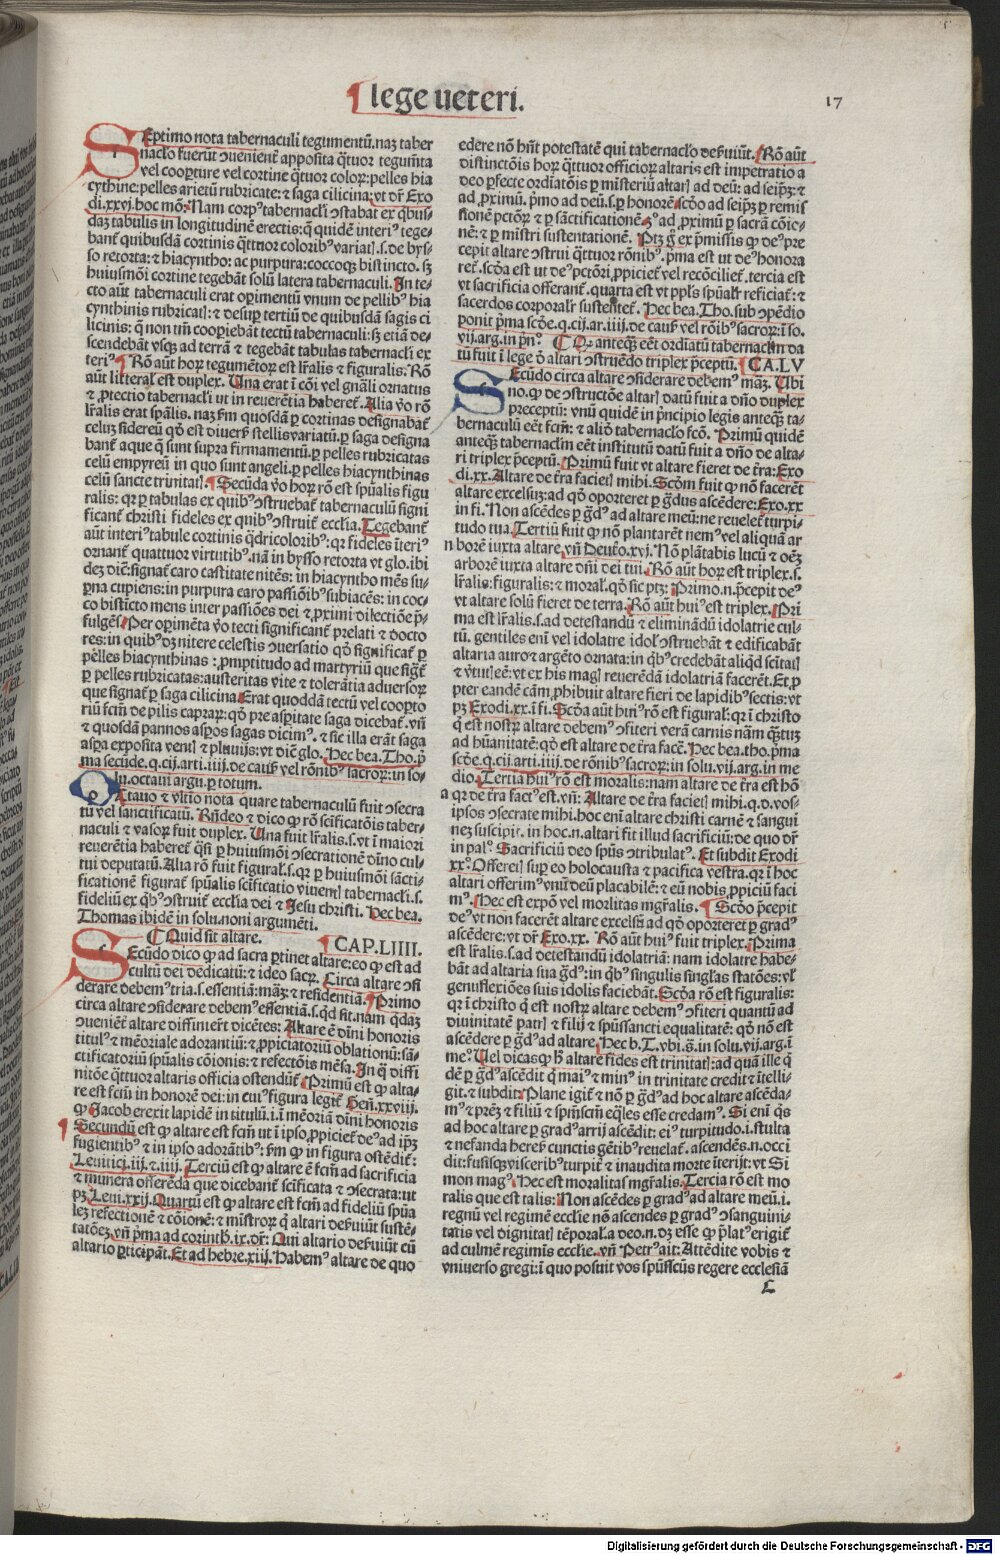 ¶ lege ueteri.
17
SEptimo nota tabernaculi tegumentū. naꝫ taber
naclo fuerūt ꝯuenienť apposita q̈tuor tegumẽta
vel cooperture vel cortine q̈tuor coloꝝ: pelles hia
cythine: pelles arietū rubricate: ⁊ saga cilicina: ut dr̄ Exo
di. xxvj. hoc mō: Nam corpꝰ tabernacli ꝯstabat ex qͥbus
daꝫ tabulis in longitudinē erectis: q̄ quidē interiꝰ tege
banť quibusdā cortinis q̈ttuor coloribꝰ variaƚ. s. de bys
so retorta: ⁊ hiacyntho: ac purpura: coccoqꝫ bis tincto. sꝫ
huiusmōi cortine tegebāt solū latera tabernaculi. In te
cto aūt tabernaculi erat oꝑimentū vnum de pellibꝰ hia
cynthinis rubricaƚ: ⁊ desuꝑ tertiū de quibusdā sagis ci
licinis: q̄ non tm̄ cooꝑiebāt tectū tabernaculi: sꝫ etiā de
scendebāt vsqꝫ ad terrā ⁊ tegebāt tabulas tabernacli ex
teriꝰ. ¶ Rō aūt hoꝝ tegumētoꝝ est lr̄alis ⁊ figuralis: Rō
aūt litteraƚ est duplex. Una erat ī cōi vel gn̄ali ornatus
⁊ ꝓtectio tabernacli ut in reuerētia haberetˀ. Alia v̊o rō
lr̄alis erat sp̄alis. naꝫ ſm quosdā ꝑ cortinas designabať
celuꝫ sidereū qđ est diuersꝰ stellis variatū. ꝑ saga designa
banť aque q̄ sunt supra firmamentū. ꝑ pelles rubricatas
celū empyreū in quo sunt angeli. ꝑ pelles hiacynthinas
celū sancte trinitaƚ. ¶ Secūda v̊o hoꝝ rō est sp̄ualis figu
ralis: qꝛ ꝑ tabulas ex quibꝰ ꝯstruebať tabernaculū signi
ficanť christi fideles ex quibꝰ ꝯstruiť ecclīa. Tegebanť
aūt interiꝰ tabule cortinis q̈dricoloribꝰ: qꝛ fideles īteriꝰ
ornanť quattuor virtutibꝰ. nā in bysso retorta vt glo. ibi
deꝫ dīc: signať caro castitate nitēs: in hiacyntho mēs su
ꝑna cupiens: in purpura caro passiōibꝰ subiacēs: in coc
co bis tīcto mens inter passiōes dei ⁊ ꝓximi dilectiōe p̄
fulgēs. Per oꝑimēta v̊o tecti significanť prelati ⁊ docto
res: in quibꝰ dꝫ nitere celestis ꝯuersatio qđ significať ꝑ
pelles hiacynthinas: ꝓmptitudo ad martyriū que sigť
ꝑ pelles rubricatas: austeritas vite ⁊ tolerātia aduersoꝝ
que signať ꝑ saga cilicina. Erat quoddā tectū vel cooꝑto
riū fcm̄ de pilis capraꝝ: qđ pre aspitate saga dicebať. vn̄
⁊ quosdā pannos asꝑos sagas dicimꝰ. ⁊ sic illa erāt saga
asꝑa exposita venƚ ⁊ pluuijs: vt dīc glo. Hec bea. Tho. ꝓ
ma secūde. q. cij. arti. iiij. de cauſ vel rōnibꝰ sacroꝝ: in so
lu. octaui argu. ꝑ totum.
OCtauo ⁊ vltio nota quare tabernaculū fuit ꝯsecra
tū vel sanctificatū. Rn̄deo ⁊ dico ꝙ rō scificatōis taber
naculi ⁊ vasoꝝ fuit duplex. Una fuit lr̄alis. s. vt ī maiori
reuerētia habereť q̈si ꝑ huiusmōi ꝯsecrationē dīno cul
tui deputatū. Alia rō fuit figuraƚ. s. qꝛ ꝑ huiusmōi sācti
ficationē figurať sp̄ualis scificatio viuenƚ tabernacli. s.
fideliū ex qͥbꝰ ꝯstruiť ecclīa dei ⁊ Jesu christi. Hec bea.
Thomas ibidē in solu. noni argumēti.
¶ Quid sit altare. ¶ CAP. LIIII.
SEcūdo dico ꝙ ad sacra ꝑtinet altare: eo ꝙ est ad
cultū dei dedicatū: ⁊ ideo sacꝝ. Circa altare ꝯsi
derare debemꝰ tria. s. essentiā: māꝫ: ⁊ residentiā. ¶ Primo
circa altare ꝯsiderare debemꝰ essentiā. s. qͥd sit. nam q̈daꝫ
ꝯuenienť altare diffiniert̄ dicētes: Altare ē dn̄i honoris
titulꝰ ⁊ mēoriale adorantiū: ⁊ ꝓpiciatoriū oblationū: sā
ctificatoriū sp̄ualis cōionis: ⁊ refectōis mēsa. In q̄ diffi
nitōe q̈ttuor altaris officia ostendūť. Primū est ꝙ alta
re est fcm̄ in honorē dei: in cuiꝰ figura legiť Gen̄. xxviij.
ꝙ Jacob erexit lapidē in titulū. i. ī mēoriā dn̄i honoris
¶ Secundū est ꝙ altare est fcm̄ ut ī ipso ꝓpicieť deꝰ ad ip̄ꝫ
fugientibꝰ ⁊ in ipso adorātibꝰ: ſm ꝙ in figura ostēdiť:
Leuitici. iij. ⁊ iiij. Terciū est ꝙ altare ē fcm̄ ad sacrificia
⁊ munera offerēda que dicebanť scificata ⁊ ꝯsecrata: ut
pꝫ Leui. xxij. Quartū est ꝙ altare est fcm̄ ad fideliū sp̄ua
leꝫ refectionē ⁊ cōionē: ⁊ mīstroꝝ q̄ altari deſuiūt sustē
tatōeꝫ, vn̄ pͥma ad corinth. ix. dr̄: Qui altario deſuiūt cū
altario ꝑticipāt. Et ad hebre. xiij. Habemꝰ altare de quo
edere nō hn̄t potestatē qui tabernaclo deſuiūt. Rō aūt
distinctōis hoꝝ q̈ttuor officioꝝ altaris est impetratio a
deo ꝑfecte ordiatōis ꝑ misteriū altaƚ ad deū: ad seip̄ꝫ: ⁊
ad ꝓximū. pͥmo ad deū. s. ꝑ honorē: scđo ad seip̄ꝫ ꝑ remis
sionē pctōꝝ ⁊ ꝑ sāctificationē. 3ꝰ ad ꝓximū ꝑ sacrā cōio
nē: ⁊ ꝑ mīstri sustentationē. Ptꝫ g̊ ex p̄missis ꝙ deꝰ pre
cepit altare ꝯstrui q̈ttuor rōnibꝰ. pͥma est ut deꝰ honora
reť. scđa est ut deꝰ pctōri, ꝓpicieť vel recōcilieť. tercia est
vt sacrificia offeranť. quarta est vt ppl̄s sp̄ualř reficiať: ⁊
sacerdos corporalř sustenteť. Hec bea. Tho. sub ꝯpēdio
ponit pͥma scđe. q. cij. ar. iiij. de cauſ vel rōibꝰ sacroꝝ: ī so.
vij. arg. in pn̊. ¶ Qꝛ anteqꝫ eēt ordiatū tabernaclm̄ da
tū fuit ī lege ꝺ̄ altari ꝯstruēdo triplex p̄ceptū. ¶ CA. LV
SEcūdo circa altare ꝯsiderare debemꝰ māꝫ. Ubi
no. ꝙ de ꝯstructōe altaƚ datū fuit a dn̄o duplex
preceptū: vnū quidē in pͥncipio legis anteqꝫ ta
bernaculū eēt fcm̄: ⁊ aliđ tabernaclo fcō. Primū quidē
anteqꝫ tabernaclm̄ eēt institutū datū fuit a dn̄o de alta
ri triplex p̄ceptū. Primū fuit vt altare fieret de ťra: Exo
di. xx. Altare de ťra facieƚ mihi. Scđm fuit ꝙ nō facerēť
altare excelsuꝫ: ad qđ oporteret ꝑ gͣdus ascēdere: Exo. xx
in fi. Non ascēdes ꝑ gͣdꝰ ad altare meū: ne reueleť turpi
tudo tua. Tertiū fuit ꝙ nō plantarēť nemꝰ vel aliquā ar
borē iuxta altare, vn̄ Deuťo. xvj. Nō plātabis lucū ⁊ oēꝫ
arborē iuxta altare dn̄i dei tui. Rō aūt hoꝝ est triplex. s.
lr̄alis: figuralis: ⁊ moraƚ. qđ sic ptꝫ: Primo. n. p̄cepit deꝰ
vt altare solū fieret de terra. Rō aūt huiꝰ est triplex. Pri
ma est lr̄alis. s. ad detestandū ⁊ eliminādū idolatrie cul
tū. gentiles enī vel idolatre idoƚ ꝯstruebāt ⁊ edificabāt
altaria auro ⁊ argēto ornata: in qͥbꝰ credebāt aliqͥd scītaƚ
⁊ v̊tuƚ eē: vt ex his magƚ reuerēdā idolatriā facerēt. Et ꝓ
pter eandē cām ꝓhibuit altare fieri de lapidibꝰ sectis: vt
pꝫ Exodi. xx. ī fi. Scđa aūt huiꝰ rō est figuraƚ: qꝛ ī christo
qͥ est nostꝝ altare debemꝰ ꝯfiteri verā carnis nām q̈ꝫtuꝫ
ad hūanitatē: qđ est altare de ťra facē. Hec bea. tho. pͥma
scđe. q. cij. arti. iiij. de rōnibꝰ sacroꝝ: in solu. vij. arg. in me
dio. Tertia huiꝰ rō est moralis: nam altare de ťra est hō
qꝛ de ťra factꝰ est. vn̄: Altare de ťra facieƚ mihi. q. d. vos
ipsos ꝯsecrate mihi. hoc enī altare christi carnē ⁊ sangui
nez suscipit. in hoc. n. altari fit illud sacrificiū: de quo dr̄
in palꝰ: Sacrificiū deo sp̄us ꝯtribulatꝰ. Et subdit Exodi
xxꝰ: Offereƚ suꝑ eo holocausta ⁊ pacifica vestra. qꝛ ī hoc
altari offerimꝰ vnū deū placabilē: ⁊ eū nobis ꝓpiciū faci
mꝰ. Hec est expō vel morlitas mgr̄alis. ¶ Scđo p̄cepit
deꝰ vt non facerēt altare excelsū ad qđ oporteret ꝑ gradꝰ
ascēdere: vt dr̄ Exo. xx. Rō aūt huiꝰ fuit triplex. Prima
est lr̄alis. s. ad detestandū idolatriā: nam idolatre habe
bāt ad altaria sua gͣdꝰ: in qͥbꝰ singulis singl̄as statōes: vƚ
genuflexiōes suis idolis faciebāt. Scđa rō est figuralis:
qꝛ ī christo qͥ est nostꝝ altare debemꝰ ꝯfiteri quantū ad
diuinitatē patrƚ ⁊ filij ⁊ sp̄ussancti equalitatē: qđ nō est
ascēdere ꝑ gͣdꝰ ad altare. Hec b. T. vbi s̄. in solu. vij. arg. ī
meꝰ. Uel dicas ꝙ h̄ altare fides est trinitaƚ: ad quā ille q̄
dē ꝑ gͣdꝰ ascēdit qͥ maiꝰ ⁊ minꝰ in trinitate credit ⁊ ītelli
git. ⁊ subdit: Plane igiť ⁊ nō ꝑ gͣdꝰ ad hoc altare ascēda
mꝰ ⁊ pr̄eꝫ ⁊ filiū ⁊ sp̄mscm̄ eq̄les esse credamꝰ. Si enī qͥs
ad hoc altare ꝑ gradꝰ arrij ascēdit: eiꝰ turpitudo. i. stulta
⁊ nefanda heresꝰ cunctis gētibꝰ reuelať. ascendēs. n. occi
dit: fusisqꝫ visceribꝰ turpiť ⁊ inaudita morte īterijt: vt Si
mon magꝰ. Hec est moralitas mgr̄alis. Tercia rō est mo
ralis que est talis: Non ascēdes ꝑ gradꝰ ad altare meū. i.
regnū vel regimē ecclīe nō ascendes ꝑ gradꝰ ꝯsanguini
tatis vel dignitaƚ tēporaƚ. a deo. n. dꝫ esse ꝙ p̄latꝰ erigiť
ad culmē regimīs ecclīe. vn̄ Petrꝰ ait: Attēdite vobis ⁊
vniuerso gregi: ī quo posuit vos sp̄ussc̄us regere ecclesiā
c
Digitalisierung gefördert durch die Deutsche Forschungsgemeinschaft - DFG